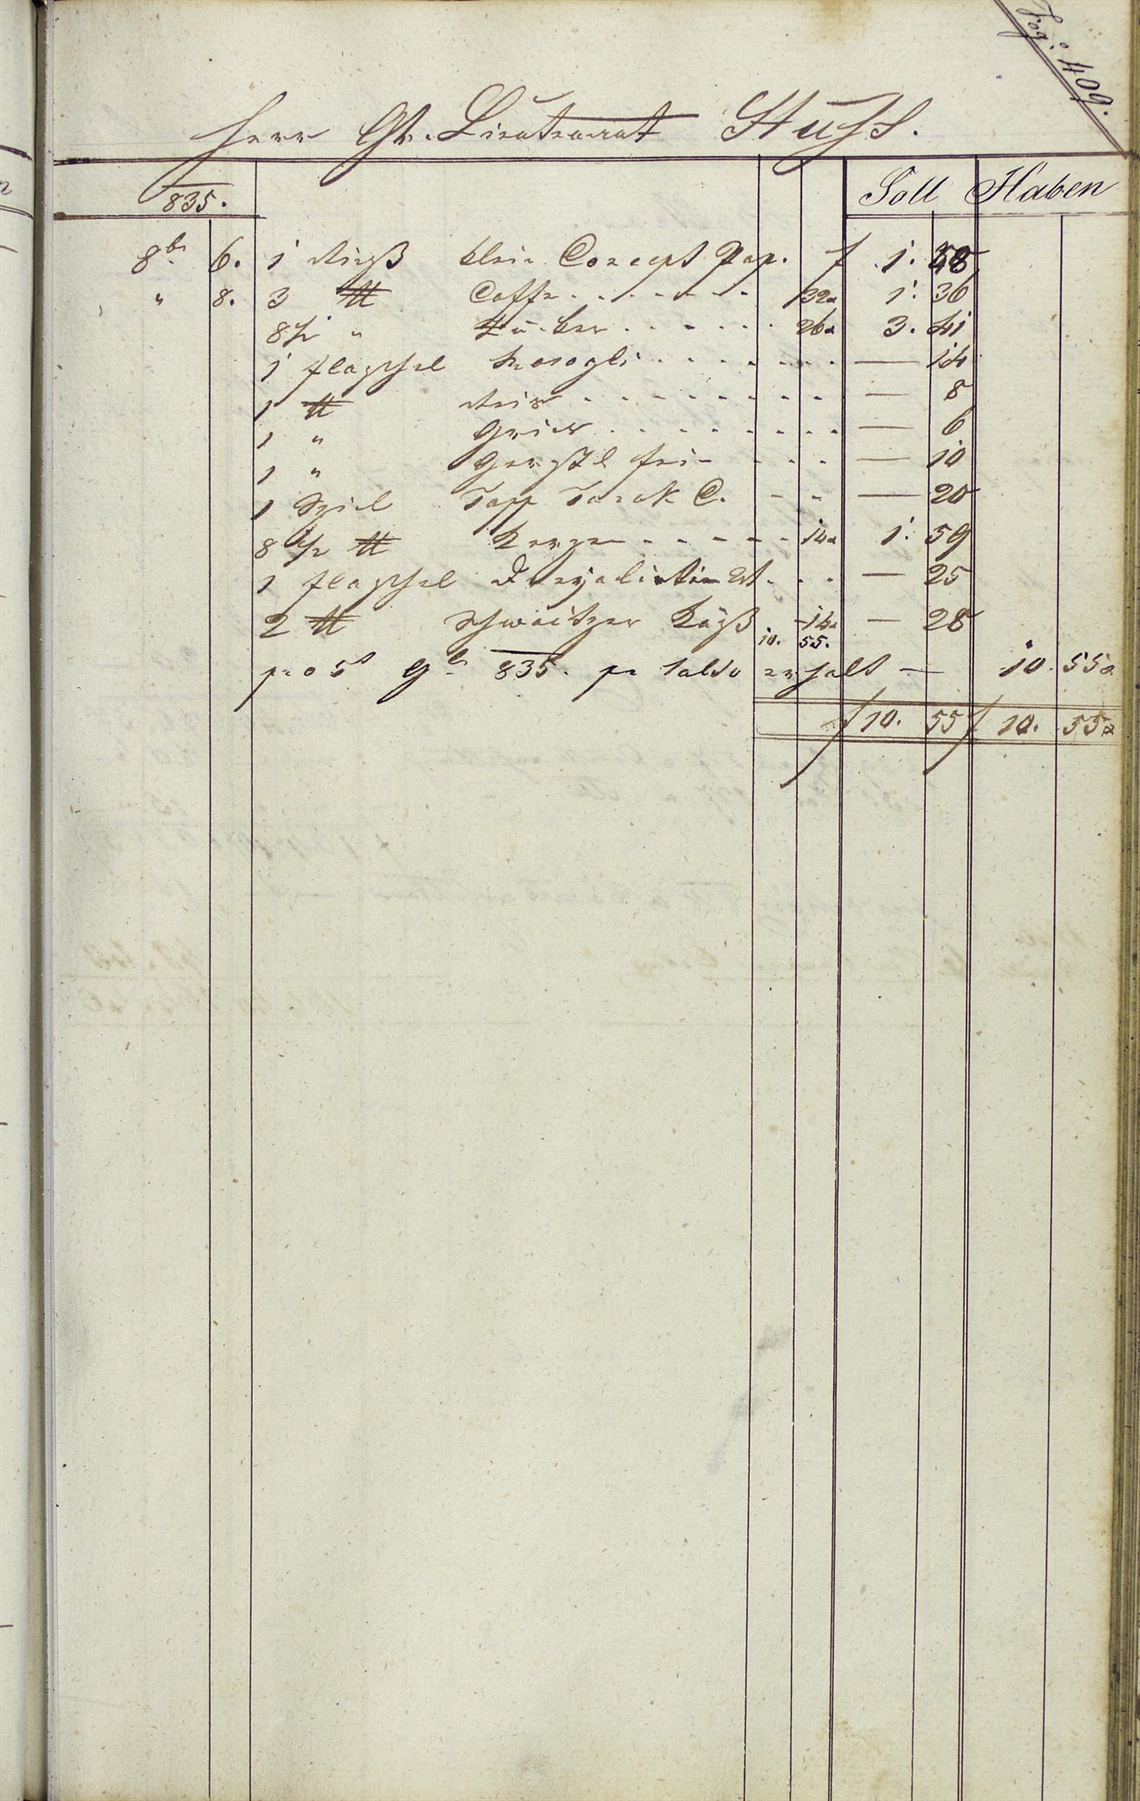 Pag: 409.
Herr Ob. Lieutenant Huss.
835. Soll Haben
8br 6. 1 Rieß klein Concept Pap. f 1. 48
" 8. 3 ℔ Caffe 32x 1. 36
8½ " Zucker 26x 3. 41
1 flaschel Rosogli — 14
1 ℔ Reis — 8
1 " Gries — 6
1 " Gerstl fein — 10
1 Spiel Tapp Tarok C. — 20
8½ ℔ Kerzen 14x 1. 59
1 flaschel — 25
2 ℔ Schweitzer Käß 14x — 28
10. 55.
pro 5t 9b 835. pr Saldo erhalt — 10. 55x
f 10. 55 f 10. 55x